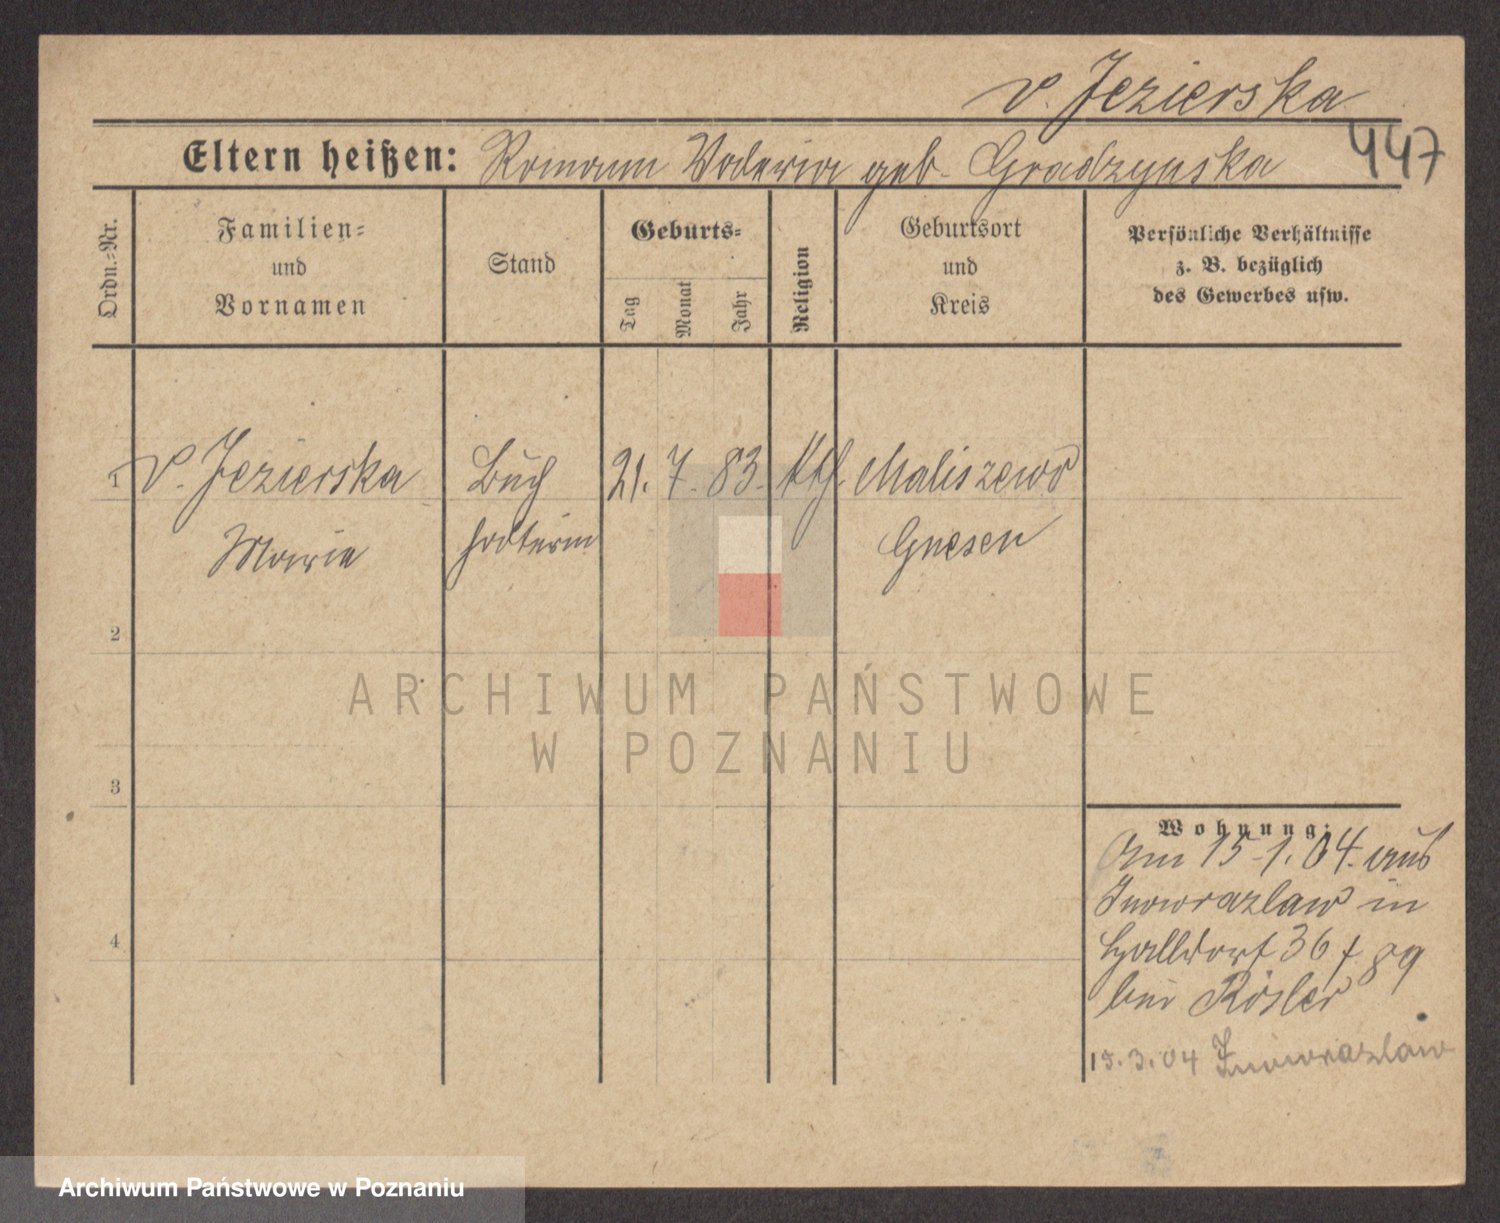 v. Jezierska
447
Eltern heißen: Roman Valeria geb. Gradzynska
Ordn.-Nr.
Familien-
und
Vornamen
Stand
Geburts-
Tag
Monat
Jahr
Religion
Geburtsort
und
Kreis
Persönliche Verhältnisse
z. B. bezüglich
des Gewerbes usw.
1 v. Jezierska Buch 21. 7. 83. kth. Maliszewo
Maria halterin Gnesen
2
3
4
Wohnung:
Am 15.1.04. aus
Inowrazlaw in
Halldorf 36 f 89
bei Rösler
15.3.04 Inowrazlaw
ARCHIWUM PAŃSTWOWE
W POZNANIU
Archiwum Państwowe w Poznaniu